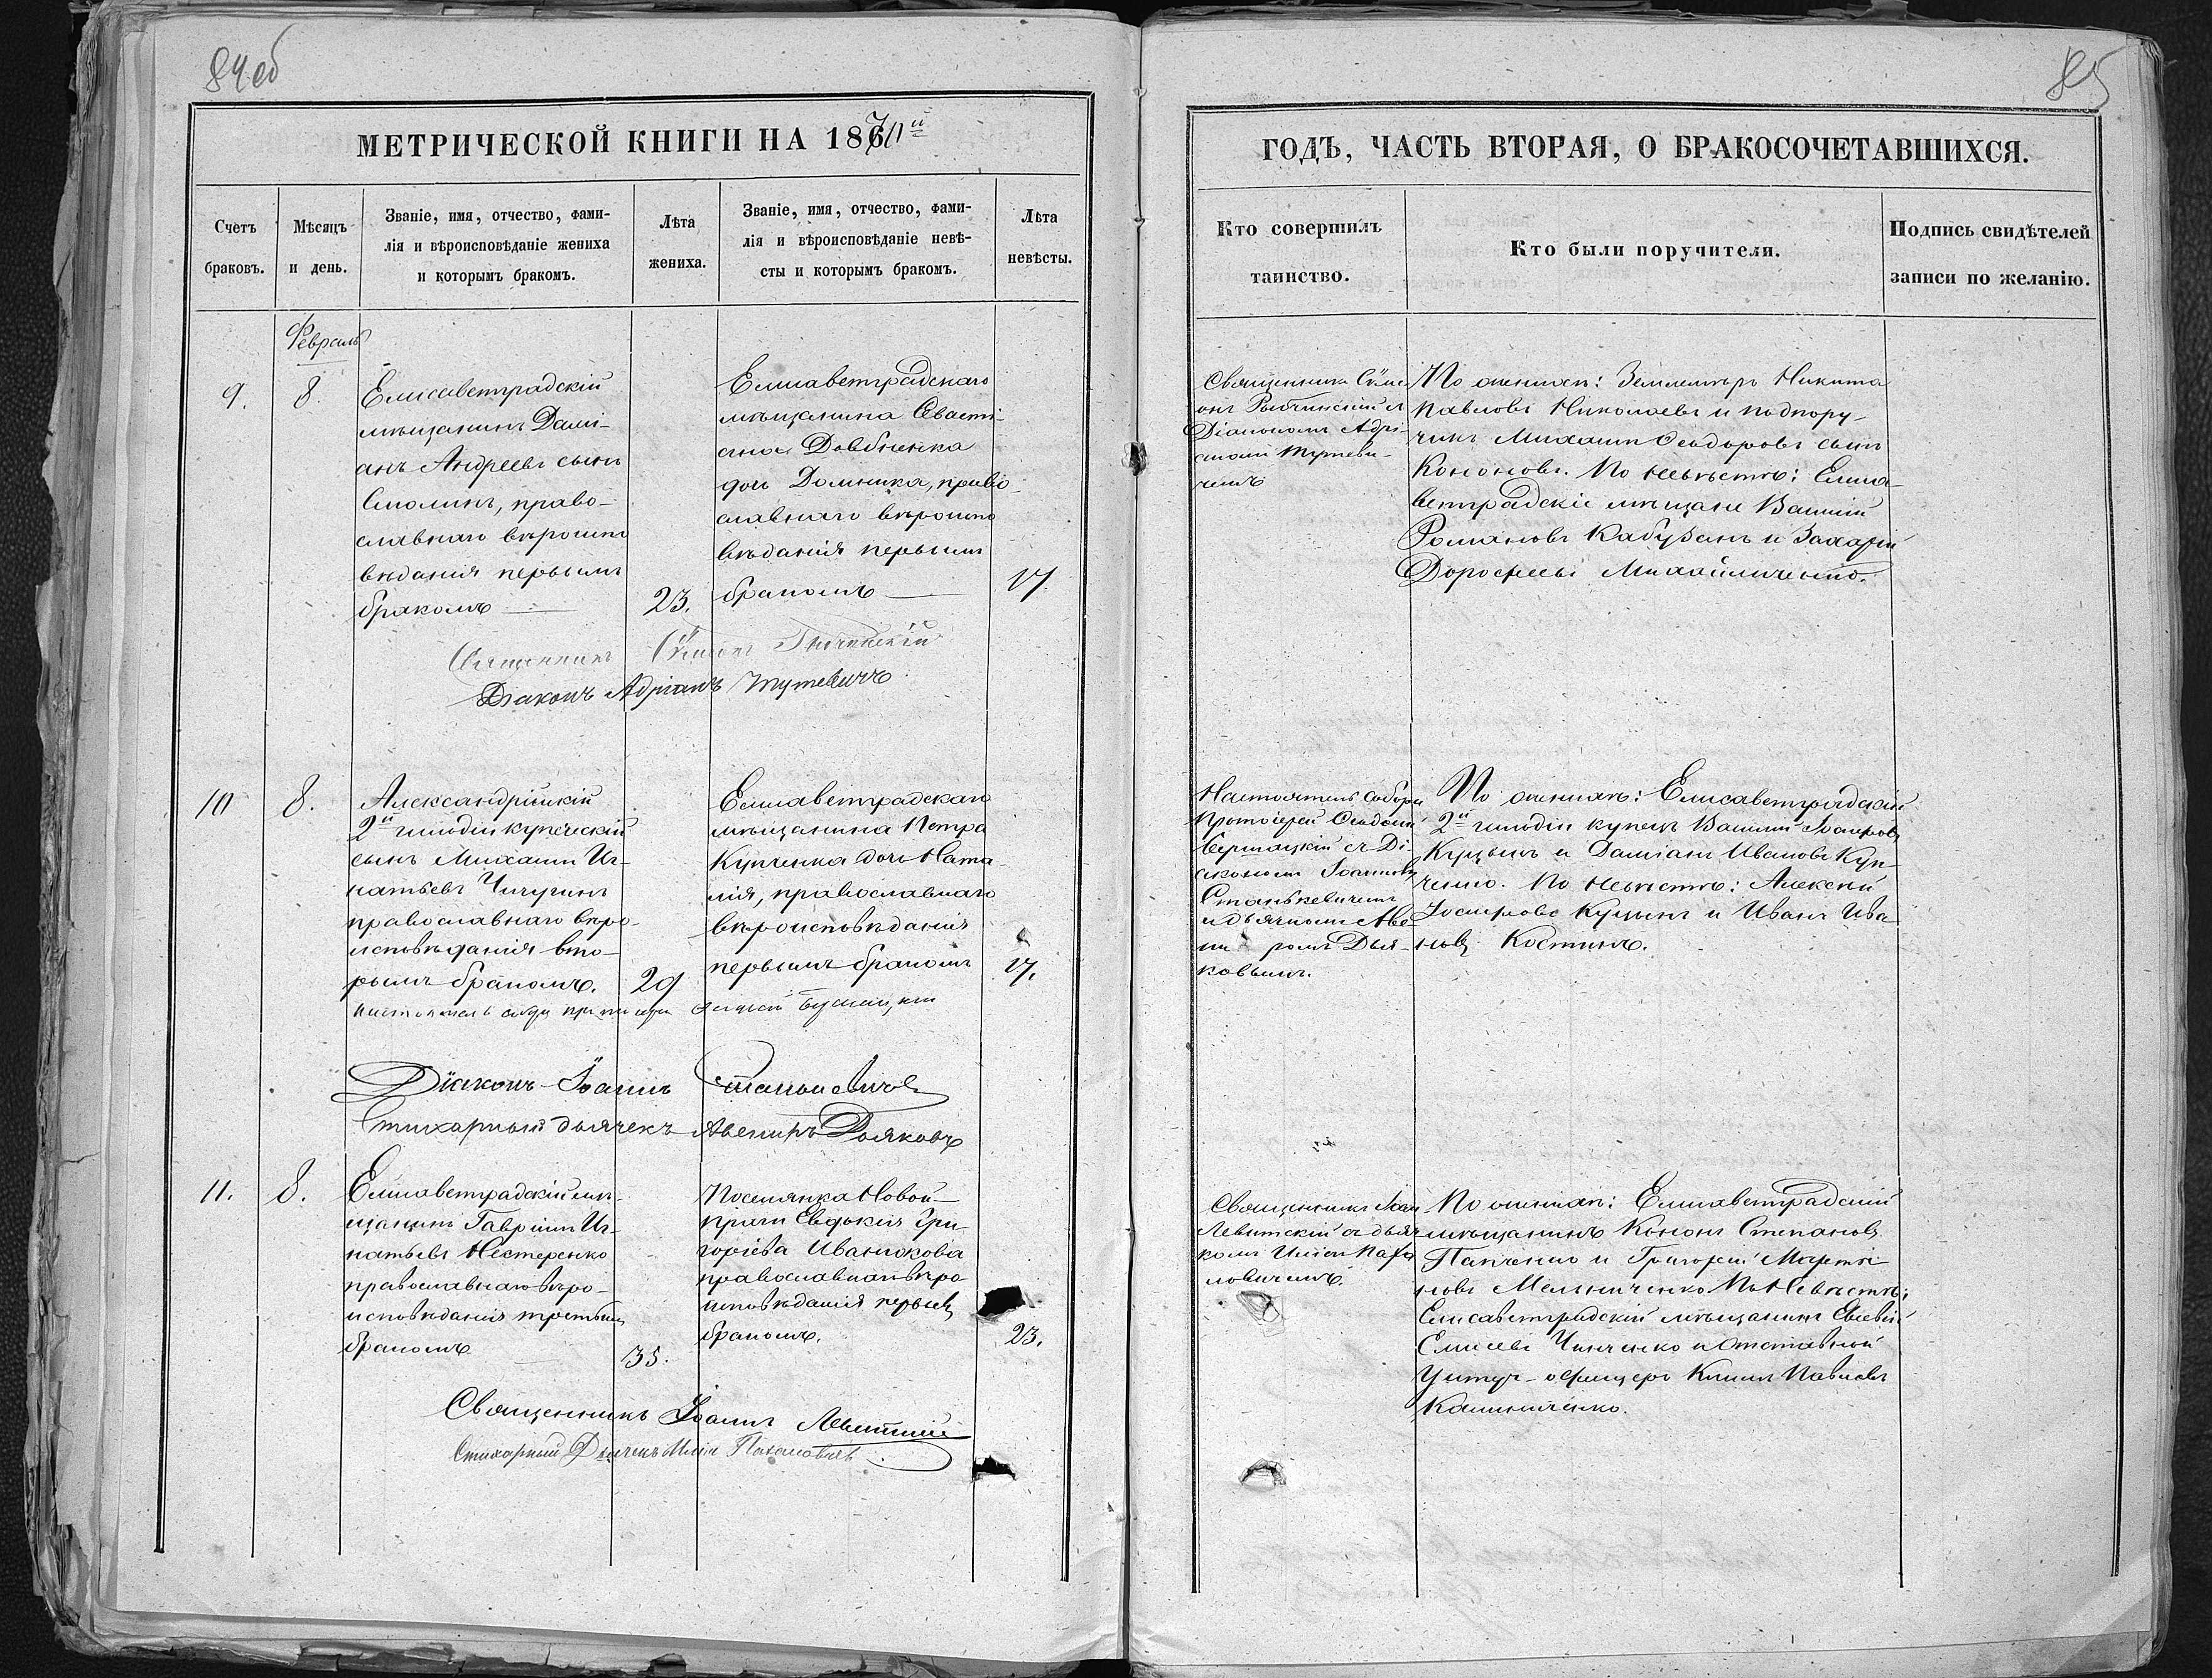 84об
МЕТРИЧЕСКОЙ КНИГИ НА 1870й
Счетъ
браковъ.
Мѣсяцъ
и день.
Званіе, имя, отчество, фами-
лія и вѣроисповѣданіе жениха
и которымъ бракомъ.
Лѣта
жениха.
Званіе, имя, отчество, фами-
лія и вѣроисповѣданіе невѣ-
сты и которымъ бракомъ.
Лѣта
невѣсты.
Февраль
9.
8.
Елисаветградскій
мѣщанинъ Дамі-
анъ Андреевъ сынъ
Смолинъ, право-
славнаго вѣроиспо
вѣданія первымъ
бракомъ
23.
Елисаветградскаго
мѣщанина Севасті-
ана Довбненка
дочь Домника, право-
славнаго вѣроиспо
вѣданія первымъ
бракомъ
17.
Священникъ Сѵмеонъ
Діаконъ Адріанъ Тутевичъ
10
8.
Александрійскій
2й гильдіи купеческій
сынъ Михаилъ Иг-
натьевъ Чичугинъ
православнаго вѣро-
исповѣданія вто-
рымъ бракомъ.
29
Елисаветградскаго
мѣщанина Петра
Купченка дочь Ната-
лія, православнаго
вѣроисповѣданія
первымъ бракомъ
17.
Діаконъ Іоаннъ Станкевичъ
Стихарный дьячекъ Авениръ Дьяковъ
11.
8.
Елисаветградскій мѣ-
щанинъ Гавріилъ Иг-
натьевъ Нестеренко
православнаго вѣро-
исповѣданія третьимъ
бракомъ
35.
Поселянка Новой-
праги Евдокія Гри-
горіева Иванюкова
православнаго вѣро
исповѣданія первымъ
бракомъ.
23.
Священникъ Іоаннъ Левитскій
Стихарный Дьячекъ Илія
85
ГОДЪ, ЧАСТЬ ВТОРАЯ, О БРАКОСОЧЕТАВШИХСЯ.
Кто совершилъ
таинство.
Кто были поручители.
Подпись свидѣтелей
записи по желанію.
Священникъ Сѵме
онъ съ
Діакономъ Адрі-
аномъ Тутеви-
чемъ
По женихѣ: Землемѣръ Никита
Павловъ Николаевъ и подпору-
чикъ Михаилъ Ѳеодоровъ сынъ
Кононовъ. По невѣстѣ: Елиса-
ветградскіе мѣщане Василій
Романовъ Кабузанъ и Захарій
Дороѳеевъ Михайличенко.
Настоятель собора
Протоіерей Ѳеодосій
съ Ді-
акономъ Іоанномъ
Станкевичемъ
и дьячкомъ Аве
ни ромъ Дья-
ковымъ.
По женихѣ: Елисаветградскій
2й гильдіи купецъ Василій Іосифовъ
Куцынъ и Даміанъ Ивановъ Куп-
ченко. По невѣстѣ: Алексѣй
Іосифовъ Куцынъ и Иванъ Ива
новъ Костинъ.
Священникъ Іоан
Левитскій съ дьяч
комъ Иліею Паха
ловичемъ.
По женихѣ: Елисаветградскій
мѣщанинъ Кононъ Степановъ
Папченко и Григорій Марти-
новъ Мельниченко По Невѣстѣ:
Елисаветградскій мѣщанинъ Евсевій
Елисеевъ Чинченко и Отставной
Унтеръ-офицеръ Климъ Павловъ
Калиниченко.